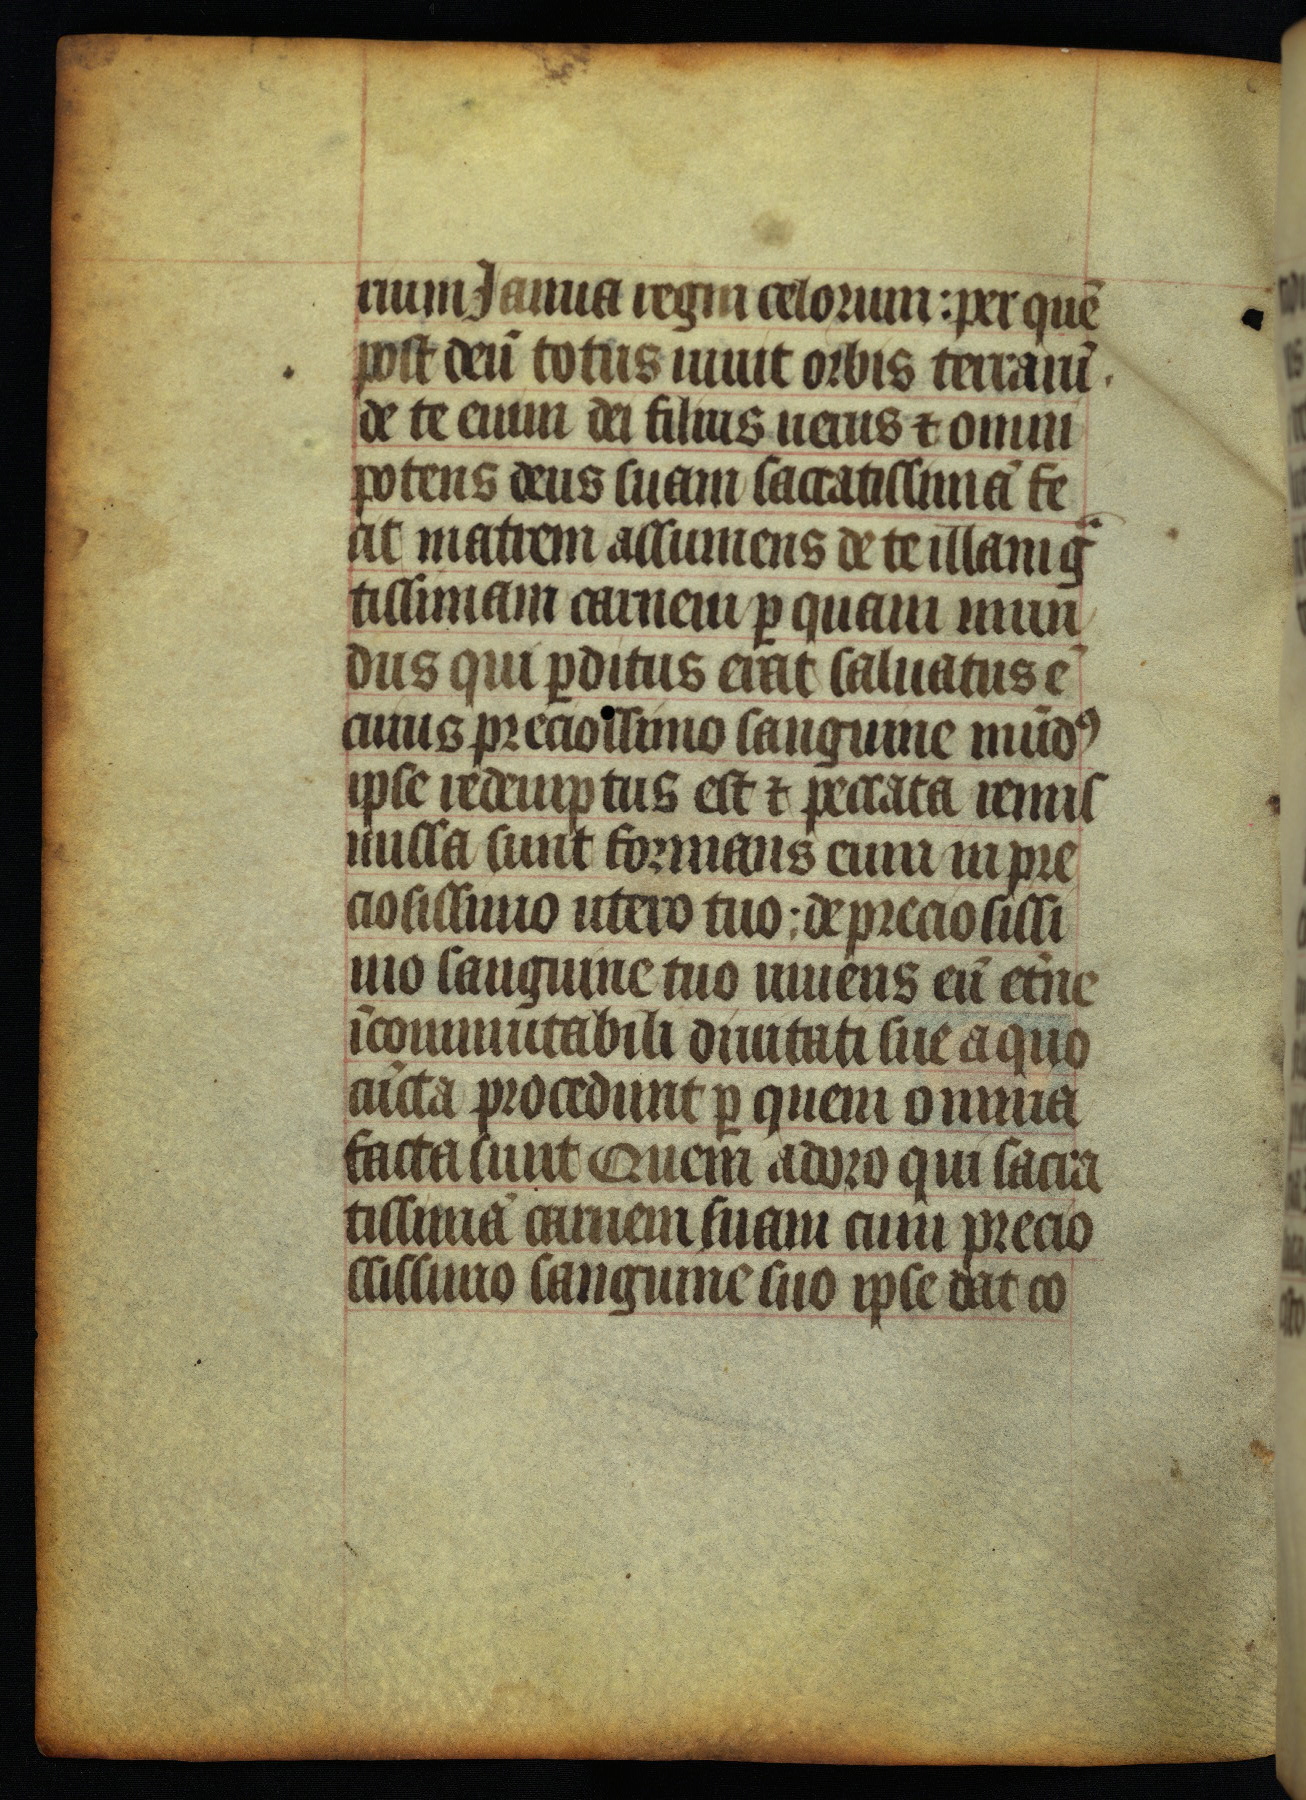 num Janua regni celorum : per quē
post deū totus uiuit orbis terrarū .
de te enim dei filius uerus ⁊ omni
potens deus suam sacratissimā fe
cit matrem assumens de te illam gͣ
tissimam carnem ꝑ quam mun
dus qui ꝑditus erat saluatus ē
cuius preciossimo sanguine mūdꝰ
ipse redemptus est ⁊ peccata remis
missa sunt formans eum in pre
ciosissimo utero tuo : de preciosissi
mo sanguine tuo uniens eū etn̄e
īcommutabili diuitati sue a quo
cūcta procedunt ꝑ quem omnia
facta sunt Quem adoro qui sacra
tissimā carnem suam cum precio
ssissimo sanguine suo ipse dat co